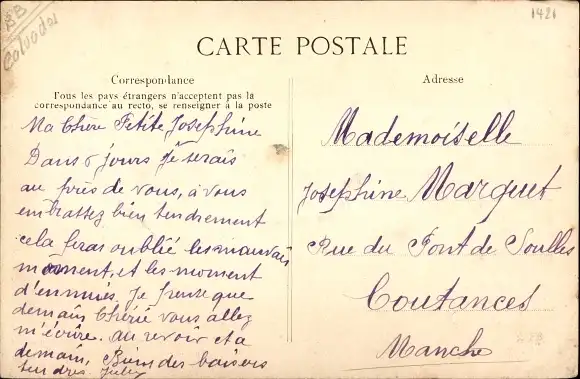 BB
Calvados
1421
CARTE POSTALE
Correspondance
Tous les pays étrangers n'acceptent pas la
correspondance au recto, se renseigner à la poste
Ma Chère Petite Josephine
Dans 5 jours Je serais
au près de vous, à vous
embrassez bien tendrement
cela feras oublié les mauvais
moment, et les moment
d'ennuies. Je pense que
demain Chérie vous allez
m'écrire. au revoir et a
demain, Biens des baisers
tendres. July
Adresse
Mademoiselle
Josephine Marquet
Rue du Pont de Soulles
Coutances
Manche